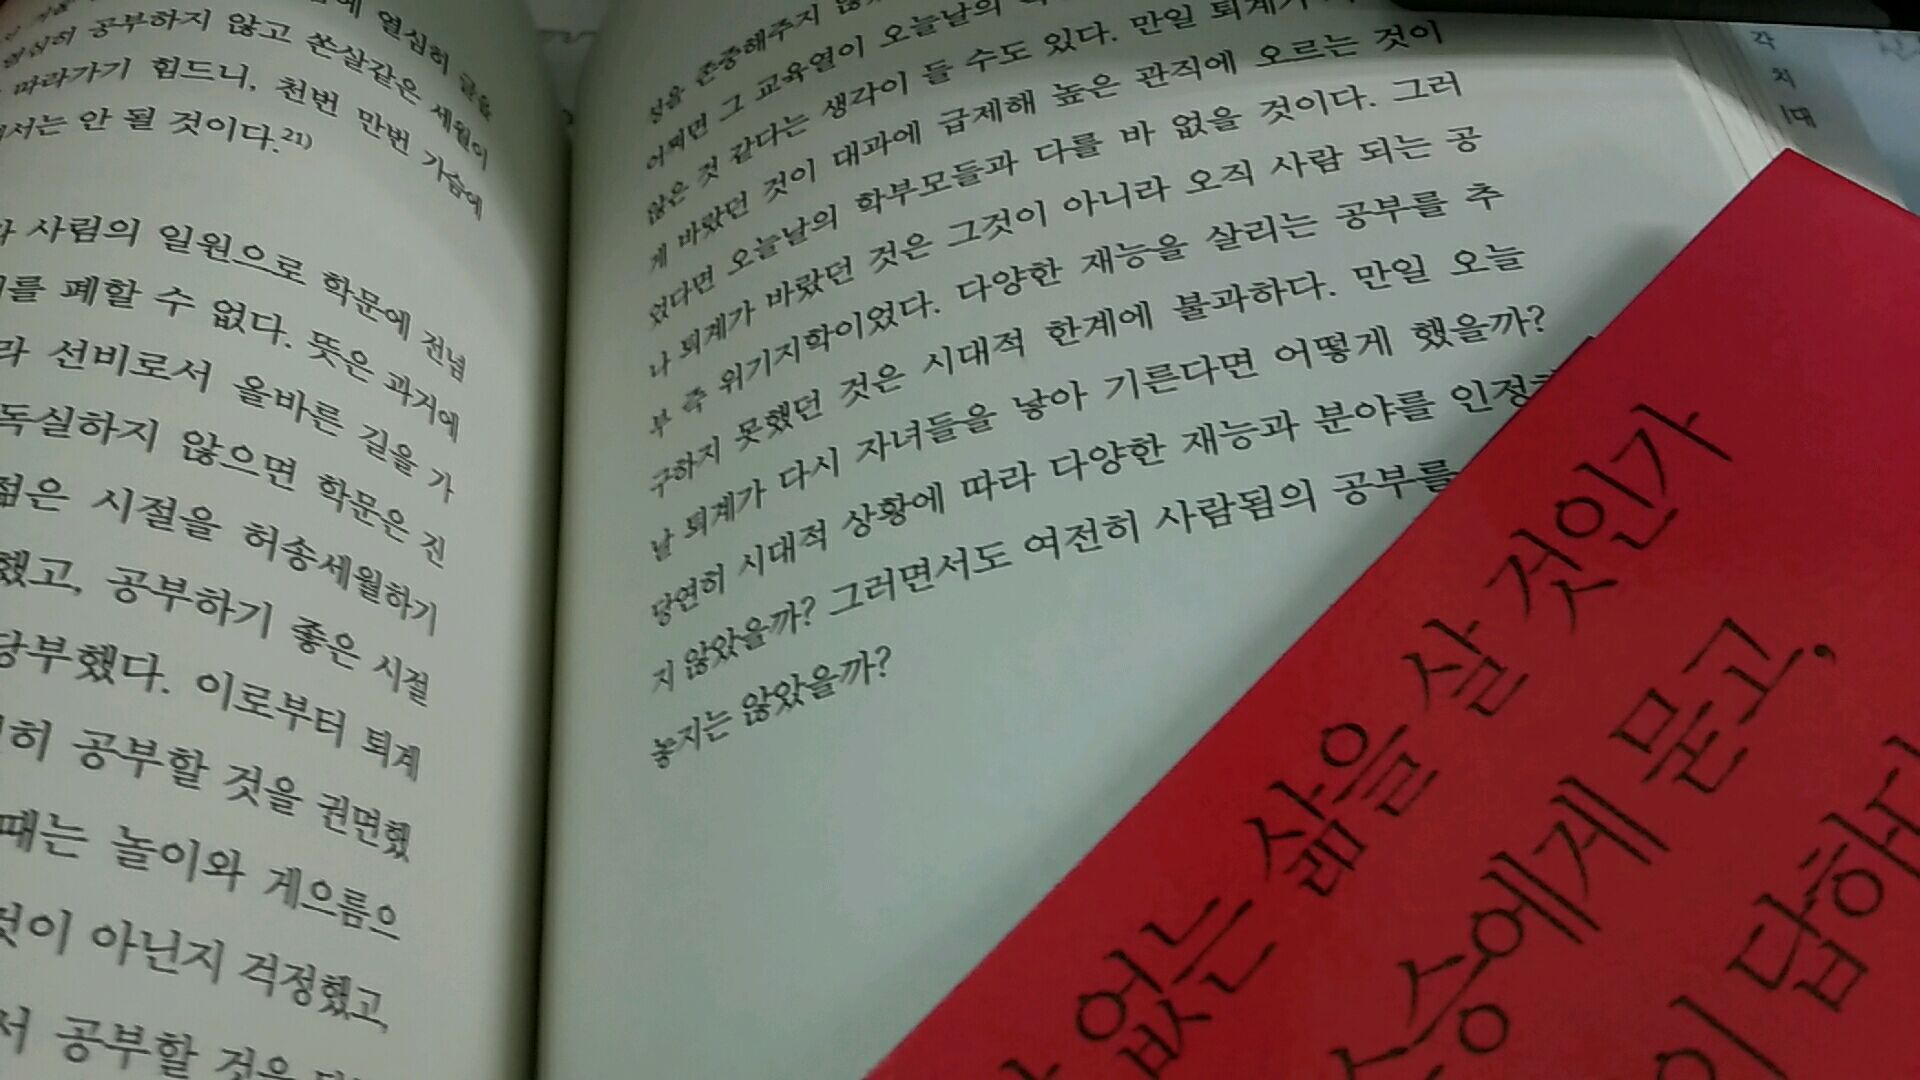 열심히 글을
공부하지 않고 쏜살같은 세월이
따라가기 힘드니, 천번 만번 가슴에
서는 안 될 것이다.21)
사림의 일원으로 학문에 전념
를 폐할 수 없다. 뜻은 과거에
라 선비로서 올바른 길을 가
독실하지 않으면 학문은 진
젊은 시절을 허송세월하기
했고, 공부하기 좋은 시절
당부했다. 이로부터 퇴계
히 공부할 것을 권면했
때는 놀이와 게으름으
것이 아닌지 걱정했고,
서 공부할 것을
성을 존중해주지
어쩌면 그 교육열이 오늘날의
않은 것 같다는 생각이 들 수도 있다. 만일 퇴계가
게 바랐던 것이 대과에 급제해 높은 관직에 오르는 것이
었다면 오늘날의 학부모들과 다를 바 없을 것이다. 그러
나 퇴계가 바랐던 것은 그것이 아니라 오직 사람 되는 공
부 즉 위기지학이었다. 다양한 재능을 살리는 공부를 추
구하지 못했던 것은 시대적 한계에 불과하다. 만일 오늘
날 퇴계가 다시 자녀들을 낳아 기른다면 어떻게 했을까?
당연히 시대적 상황에 따라 다양한 재능과 분야를 인정하
지 않았을까? 그러면서도 여전히 사람됨의 공부를
놓지는 않았을까?
각
치
대
없는 삶을 살 것인가
스승에게 묻고,
이 답하다